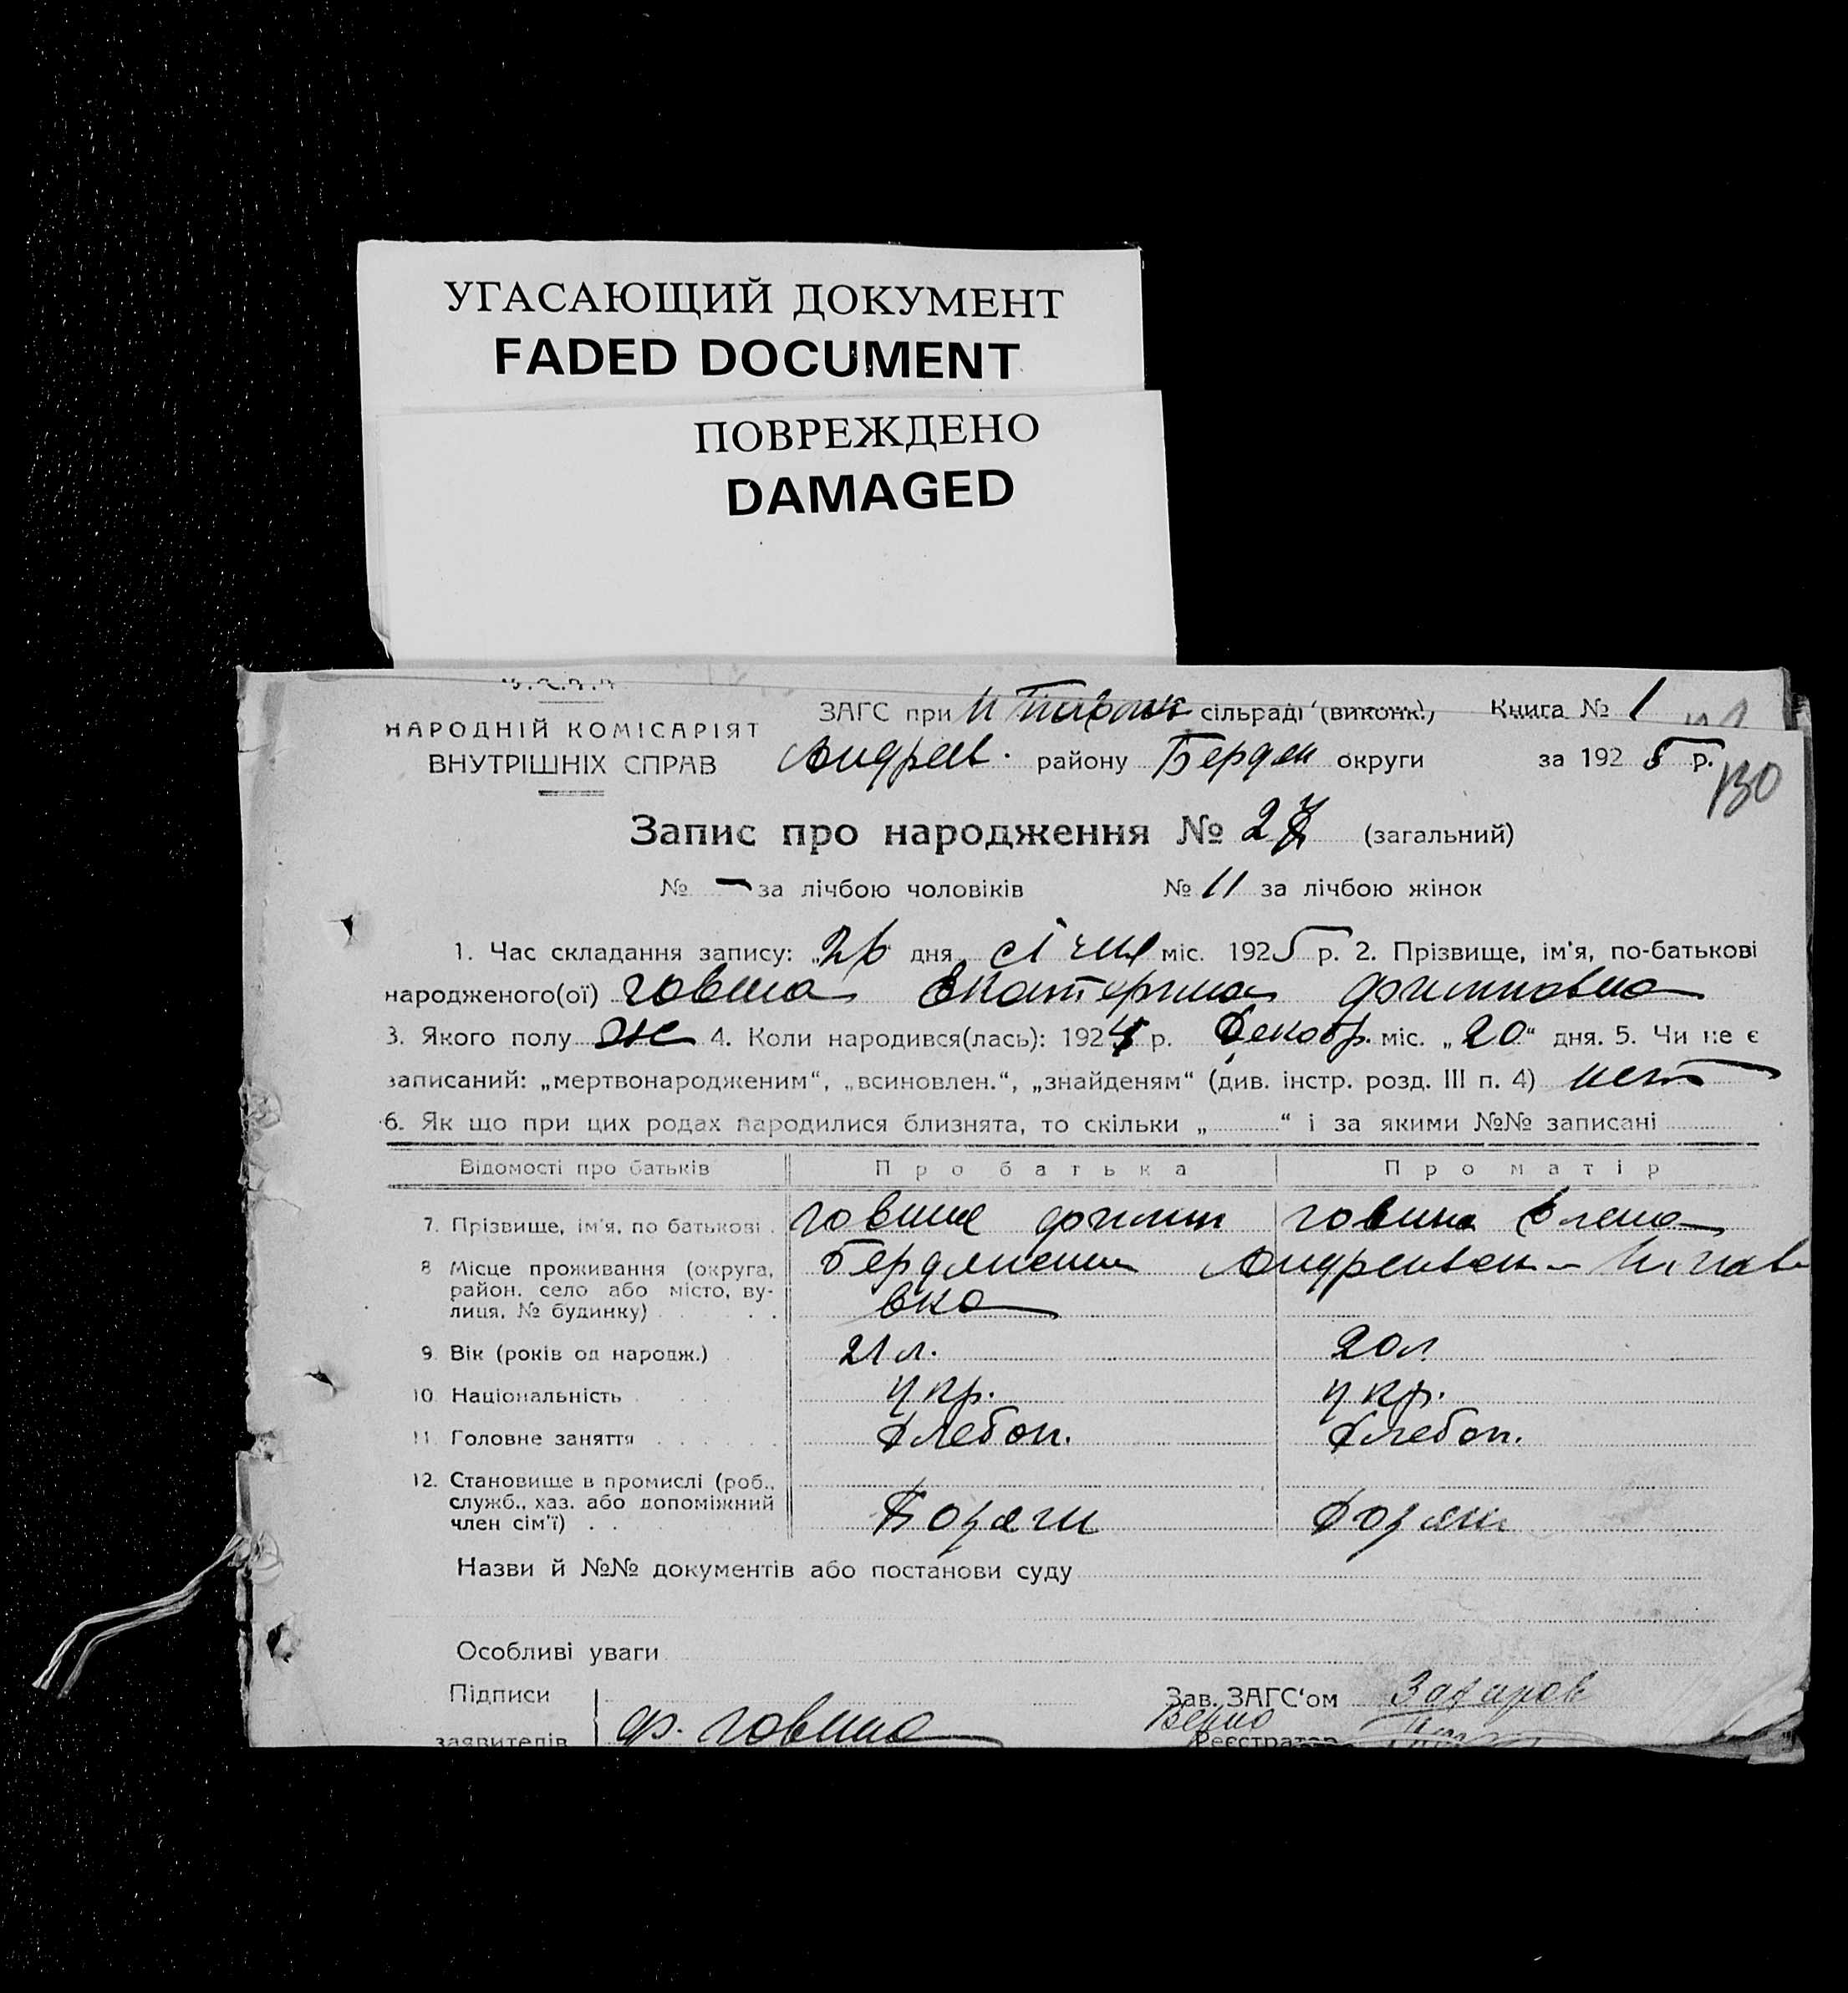 УГАСАЮЩИЙ ДОКУМЕНТ
FADED DOCUMENT
ПОВРЕЖДЕНО
DAMAGED
ЗАГС при сільраді (виконк.) Книга № 1
НАРОДНІЙ КОМІСАРІЯТ
ВНУТРІШНІХ СПРАВ
Андреев. району Бердян округи за 1925 р.
130
Запис про народження № 27 (загальний)
№ – за лічбою чоловіків № 11 за лічбою жінок
1. Час складання запису: „26 дня січня міс. 1925 р. 2. Прізвище, ім'я, по-батькові
народженого(ої) Говина Екатерина Филиповна
3. Якого полу ж 4. Коли народився(лась): 1924 р. Декабр. міс. „20“ дня. 5. Чи не є
записаний: „мертвонародженим“, „всиновлен.“, „знайденям“ (див. інстр. розд. III п. 4) нет
6. Як що при цих родах народилися близнята, то скільки „ “ і за якими №№ записані
Відомості про батьків Про батька Про матір
7. Прізвище, ім'я, по батькові Филип Говина Елена
8 Місце проживання (округа,
район, село або місто, ву-
лиця, № будинку)
вка
9. Вік (років од народж.) 21 л. 20 л.
10. Національність укр. укр.
11. Головне заняття Хлебоп. Хлебоп.
12. Становище в промислі (роб.,
служб., хаз. або допоміжний
член сім'ї)
Назви й №№ документів або постанови суду
Особливі уваги
Підписи Зав. ЗАГС'ом Захаров
заявителів Ф. Говина Верно
Реєстратор